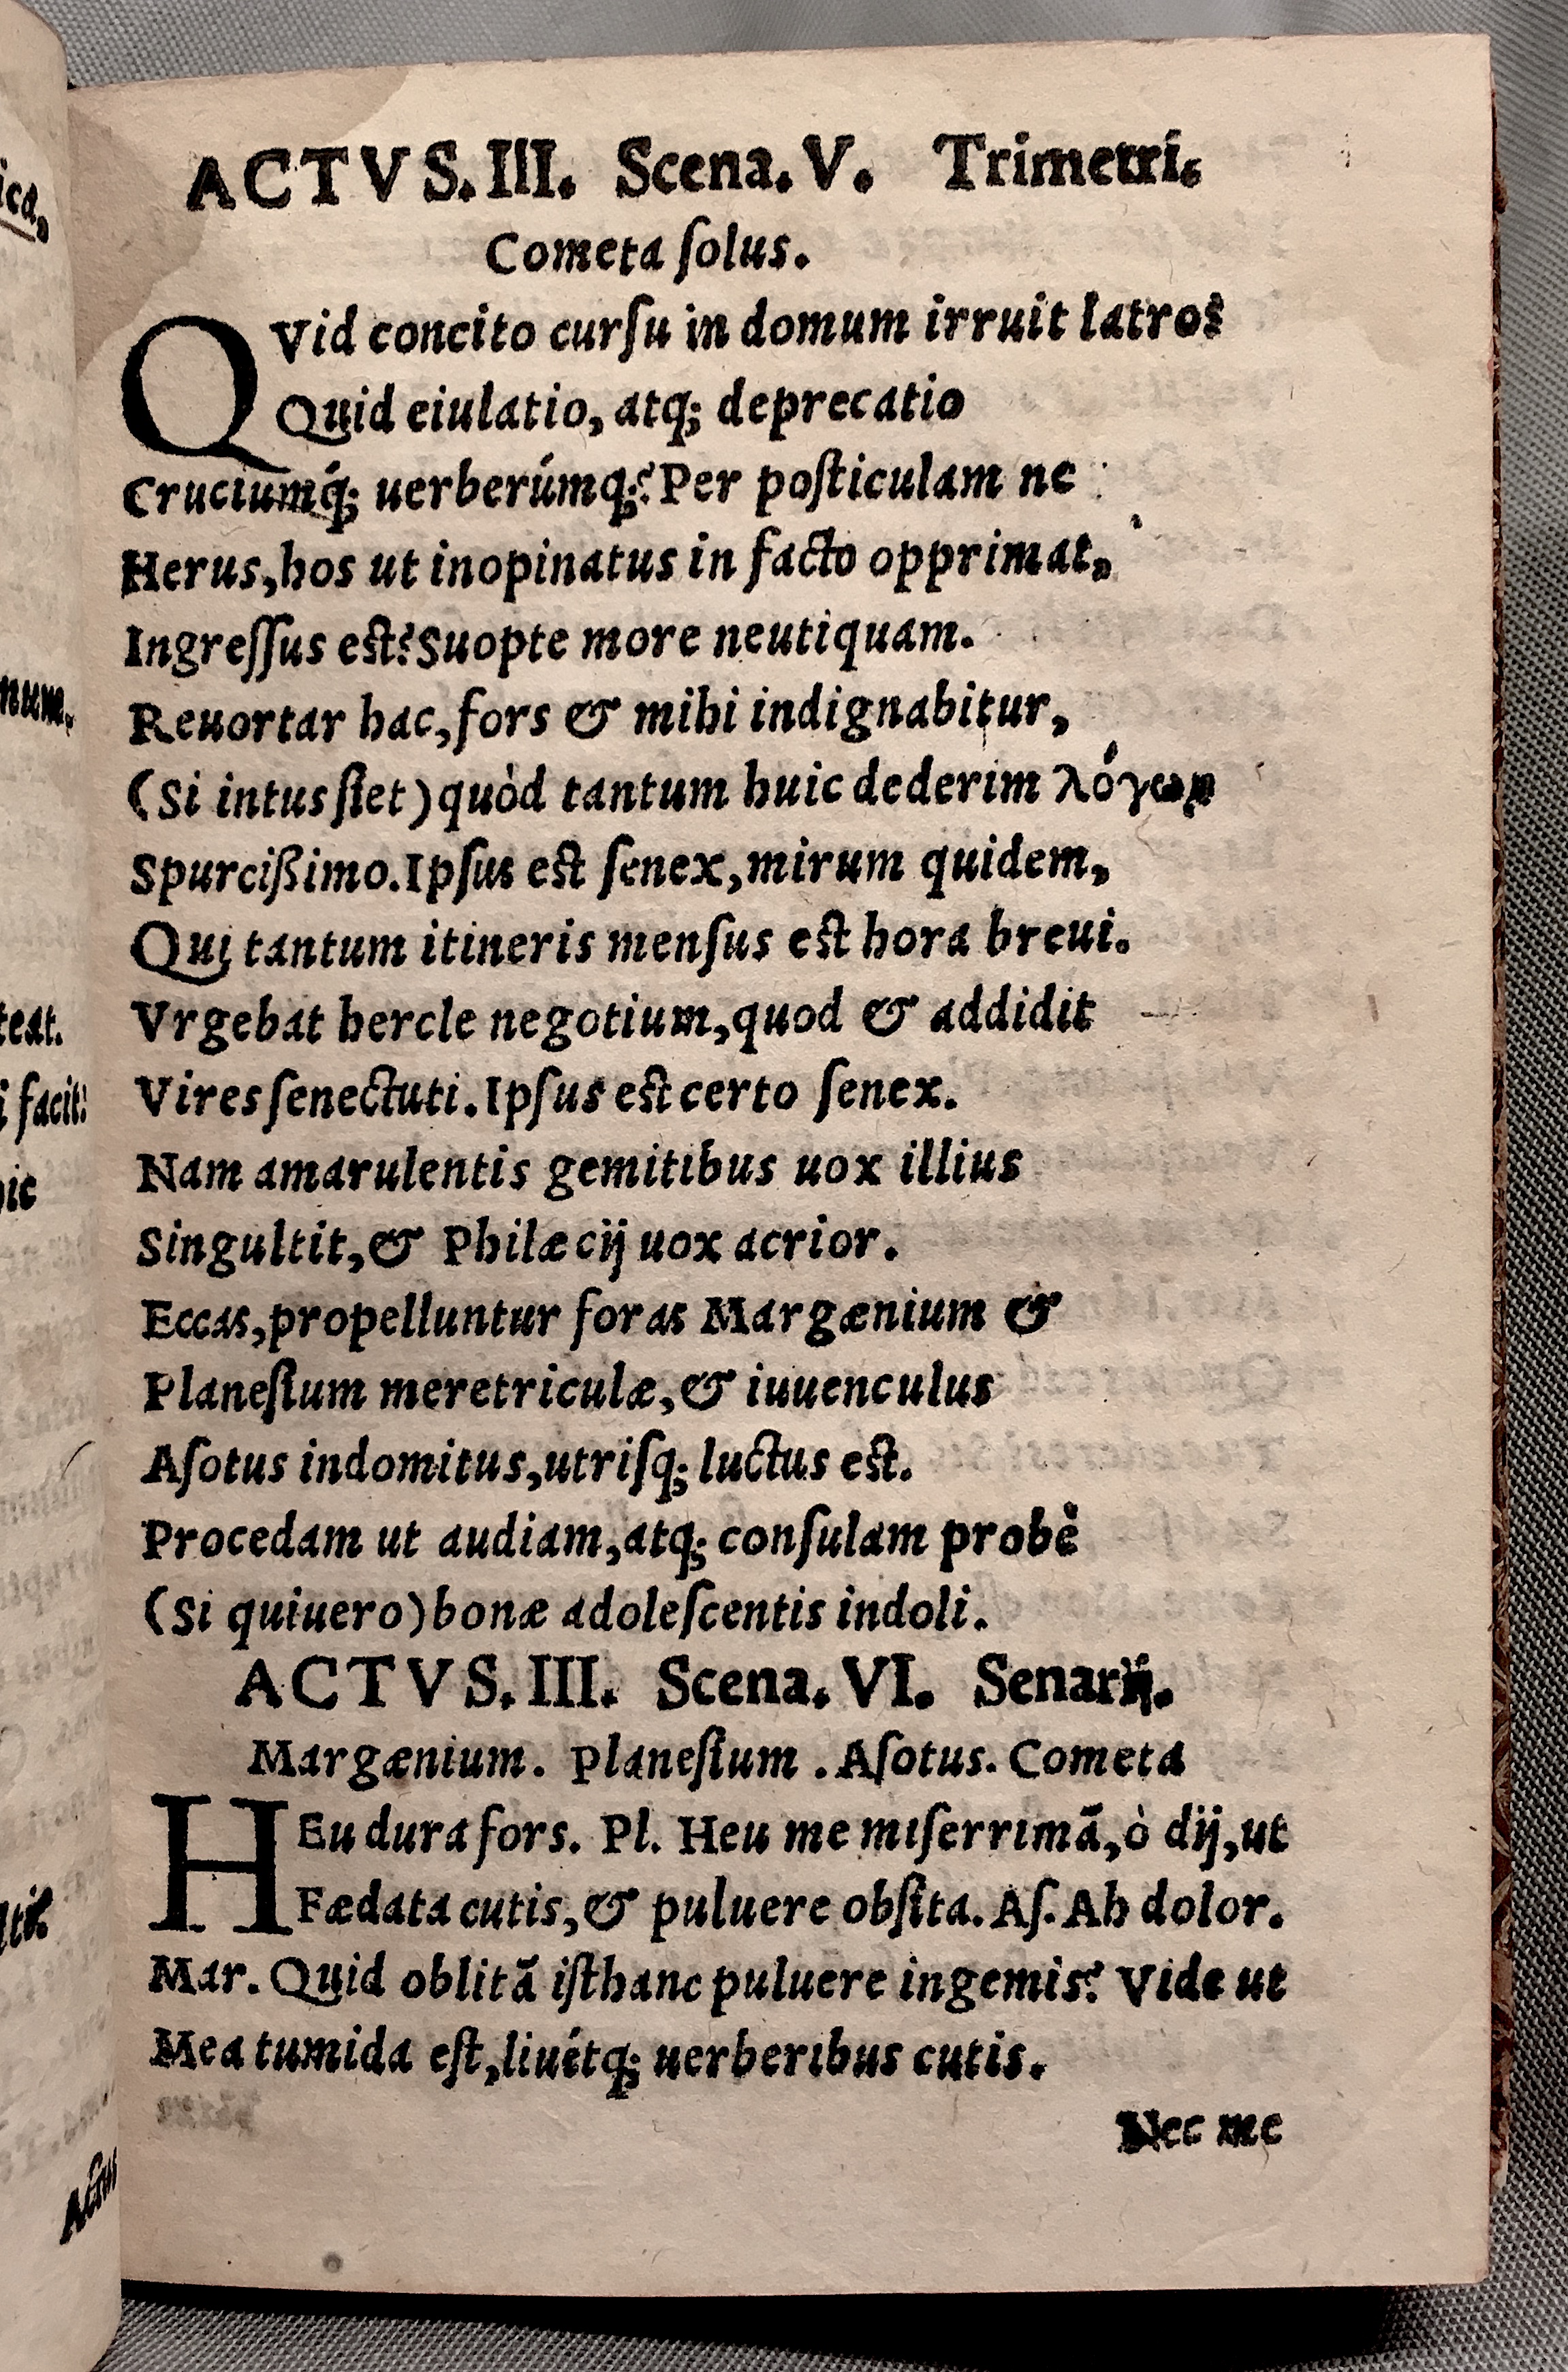 ACTVS.III. Scena.V. Trimetri.
Cometa ſolus.
QVid concito curſu in domum irruit latro?
Quid eiulatio, atq; deprecatio
Cruciumq́; uerberúmq;? Per poſticulam ne
Herus, hos ut inopinatus in facto opprimat,
Ingreſſus eſt? Suopte more neutiquam.
Reuortar hac, fors & mihi indignabitur,
(Si intus ſiet) quòd tantum huic dederim λόγωμ
Spurciſſimo. Ipſus eſt ſenex, mirum quidem,
Qui tantum itineris menſus eſt hora breui.
Vrgebat hercle negotium, quod & addidit
Vires ſenectuti. Ipſus eſt certo ſenex.
Nam amarulentis gemitibus uox illius
Singultit, & Philæcij uox acrior.
Eccas, propelluntur foras Margænium &
Planeſium meretriculæ, & iuuenculus
Aſotus indomitus, utriſq; luctus eſt.
Procedam ut audiam, atq; conſulam probè
(Si quiuero) bonæ adoleſcentis indoli.
ACTVS.III. Scena.VI. Senarij.
Margænium. Planeſium. Aſotus. Cometa
HEu dura fors. Pl. Heu me miſerrimā, ò dij, ut
Fædata cutis, & puluere obſita. Aſ. Ah dolor.
Mar. Quid oblitā iſthanc puluere ingemis? Vide ut
Mea tumida eſt, liuétq; uerberibus cutis.
Nec me
ica,
num.
teat.
i facit:
ic
Actus